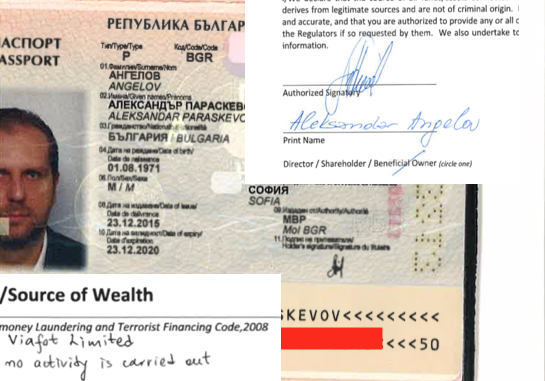 РЕПУБЛИКА БЪЛГАР
АСПОРТ
ASSPORT
Тип/Type/Type
P
Код/Code/Code
BGR
01.Фамилия/Surname/Nom
АНГЕЛОВ
ANGELOV
02.Имена/Given names/Prénoms
АЛЕКСАНДЪР ПАРАСКЕВ
ALEKSANDAR PARASKEVO
БЪЛГАРИЯ / BULGARIA
04.Дата на раждане/Date of birth/
Date de naissance
01.08.1971
06.Пол/Sex/Sexe
М / M
СОФИЯ
SOFIA
08.Дата на издаване/Date of issue/
Date de délivrance
23.12.2015
09.Издаден от/Authority/Autorité
МВР
MoI BGR
10.Дата на валидност/Date of expiry/
Date d'expiration
23.12.2020
11.Подпис на притежателя/
Holder's signature/Signature du titulaire
SKEVOV<<<<<<<<<
<<<50
derives from legitimate sources and are not of criminal origin.
and accurate, and that you are authorized to provide any or all c
the Regulators if so requested by them. We also undertake to
information.
Authorized Signatory
Aleksandar Angelov
Print Name
Director / Shareholder / Beneficial Owner (circle one)
/Source of Wealth
money Laundering and Terrorist Financing Code,2008
Viafot Limited
no activity is carried out